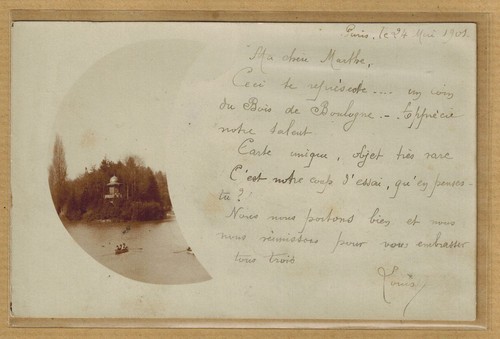 Paris, le 24 Mai 1901
Ma chère Marthe,
Ceci te représente .... un coin
du Bois de Boulogne. - Apprécie
notre talent
Carte unique, objet très rare
C'est notre coup d'essai, qu'en penses-
tu?
Nous nous portons bien et nous
nous réunissons pour vous embrasser
tous trois
Louis